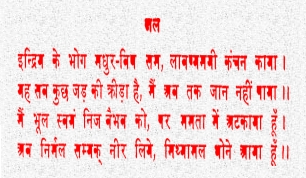 जल
इन्द्रिय के भोग मधुर-विष सम, लावण्यमयी कंचन काया ।
यह सब कुछ जड़ की क्रीड़ा है, मैं अब तक जान नहीं पाया ।।
मैं भूल स्वयं निज वैभव को, पर ममता में अटकाया हूँ ।
अब निर्मल सम्यक् नीर लिये, मिथ्यामल धोने आया हूँ ।।